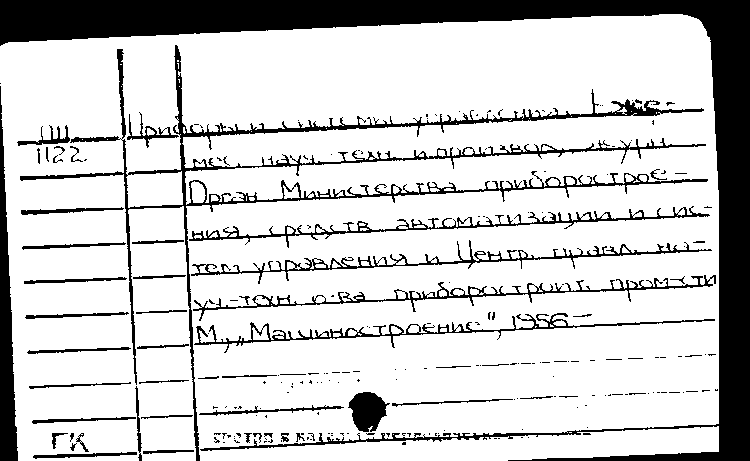 ПШ Приборы и системы управления. Еже-
1122 мес. науч. техн. и производ. журн.
Орган Министерства приборострое-
ния, средств автоматизации и сис-
тем управления и Центр. правл. на-
уч.-техн. о-ва приборостроит. пром-сти
М., „Машиностроение", 1956-
ГК